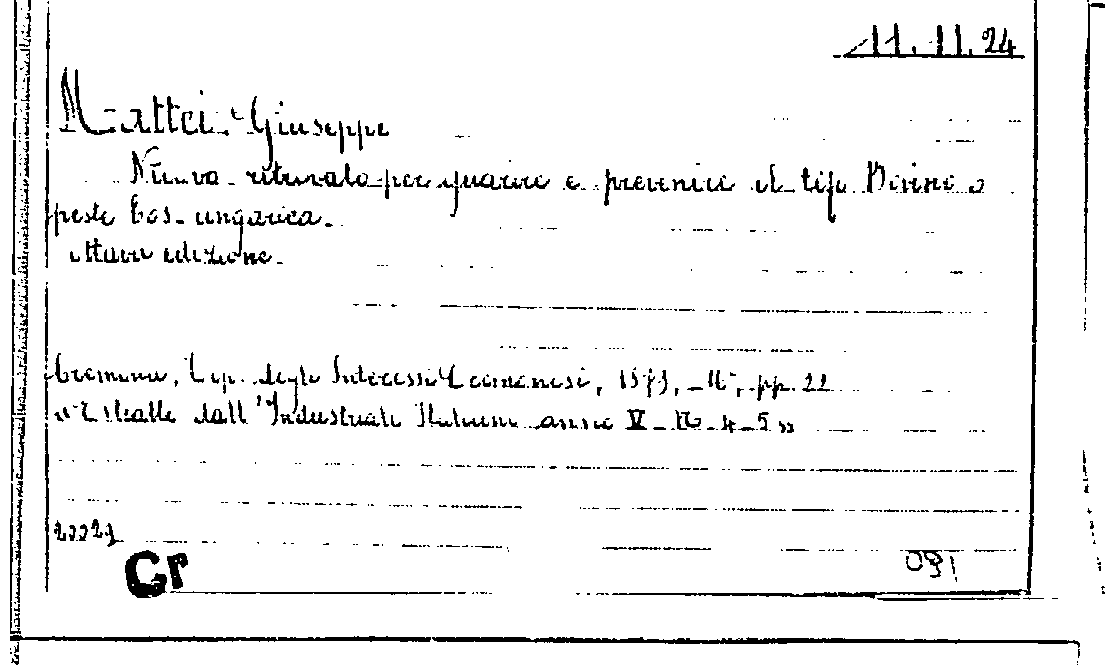 11. 11. 24
Mattei Giuseppe
Nuovo ritrovato per guarire e prevenire il tifo Bovino o
peste bos-ungarica.
ottava edizione.
Cremona, Tip. degli Interessi Cremonesi, pp. 22
"Estratto dall'Industriale Italiano anno V - N. 4-5"
Cr
091